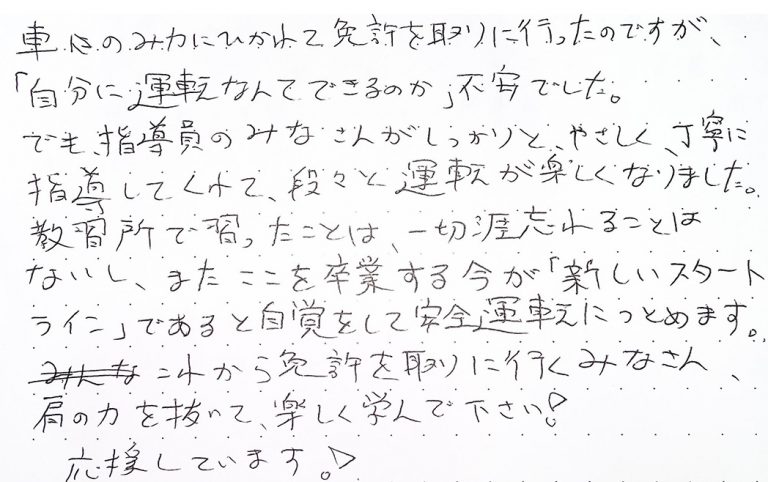 車校のみ力にひかれて免許を取りに行ったのですが、
「自分に運転なんてできるのか」不安でした。
でも、指導員のみなさんがしっかりと、やさしく、丁寧に
指導してくれて、段々と運転が楽しくなりました。
教習所で習ったことは、一切涯忘れることは
ないし、またここを卒業する今が「新しいスタート
ライン」であると自覚をして安全運転につとめます。
これから免許を取りに行くみなさん、
肩の力を抜いて、楽しく学んで下さい!
応援しています!